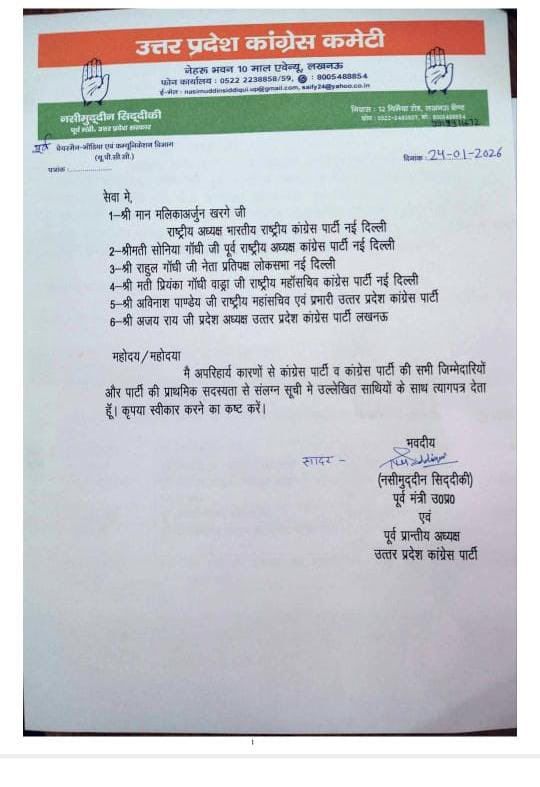 उत्तर प्रदेश कांग्रेस कमेटी
नेहरू भवन 10 माल एवेन्यू, लखनऊ
फोन कार्यालय : 0522 2238858/59, : 8005488854
ई-मेल : nasimuddinsiddiqui.up@gmail.com, saify24@yahoo.co.in
नसीमुद्दीन सिद्दीकी
पूर्व मंत्री, उत्तर प्रदेश सरकार
पूर्व चेयरमैन-मीडिया एवं कम्युनिकेशन विभाग
(यू.पी.सी.सी.)
पत्रांक :
दिनांक : 24-01-2026
सेवा मे,
1-श्री मान मलिकाअर्जुन खरगे जी
राष्ट्रीय अध्यक्ष भारतीय राष्ट्रीय कांग्रेस पार्टी नई दिल्ली
2-श्रीमती सोनिया गॉधी जी पूर्व राष्ट्रीय अध्यक्ष कांग्रेस पार्टी नई दिल्ली
3-श्री राहुल गॉधी जी नेता प्रतिपक्ष लोकसभा नई दिल्ली
4-श्री मती प्रियंका गॉधी वाड्रा जी राष्ट्रीय महॉसचिव कांग्रेस पार्टी नई दिल्ली
5-श्री अविनाश पाण्डेय जी राष्ट्रीय महांसचिव एवं प्रभारी उत्तर प्रदेश कांग्रेस पार्टी
6-श्री अजय राय जी प्रदेश अध्यक्ष उत्तर प्रदेश कांग्रेस पार्टी लखनऊ
महोदय/महोदया
मै अपरिहार्य कारणों से कांग्रेस पार्टी व कांग्रेस पार्टी की सभी जिम्मेदारियों
और पार्टी की प्राथमिक सदस्यता से संलग्न सूची मे उल्लेखित साथियों के साथ त्यागपत्र देता
हूॅ। कृपया स्वीकार करने का कष्ट करें।
भवदीय
सादर -
(नसीमुददीन सिददीकी)
पूर्व मंत्री उ0प्र0
एवं
पूर्व प्रान्तीय अध्यक्ष
उत्तर प्रदेश कांग्रेस पार्टी